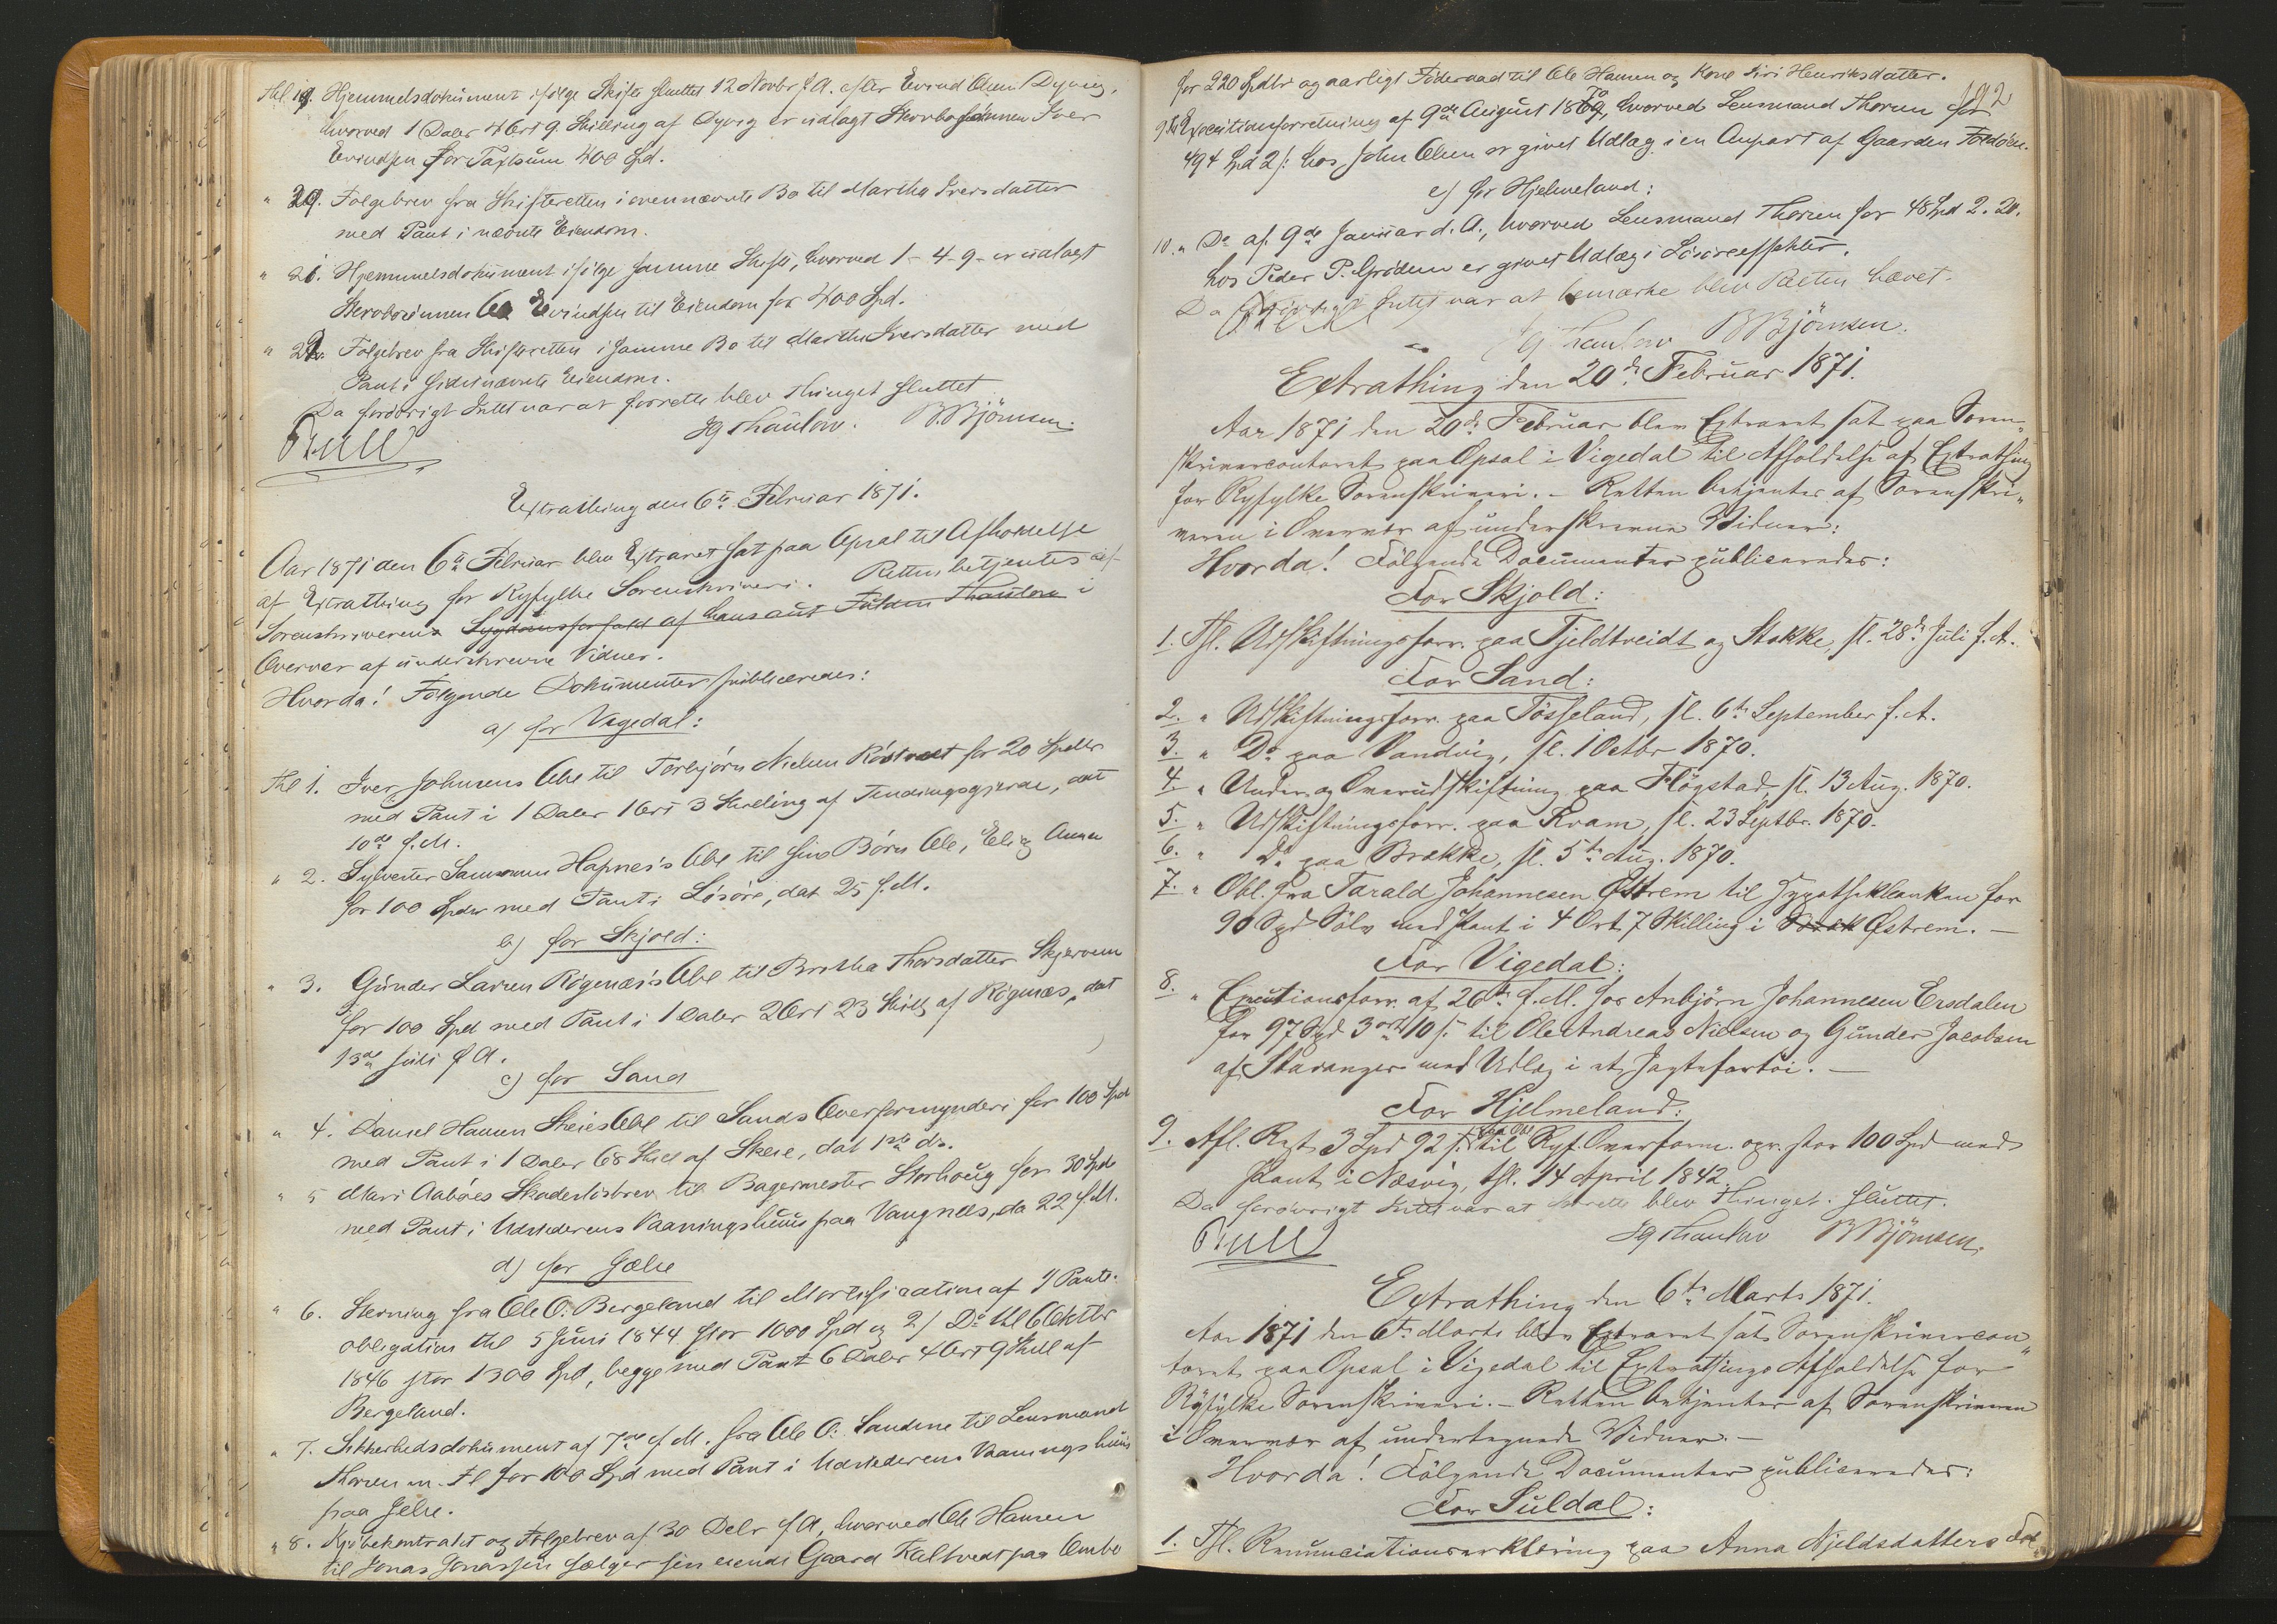 Thl. 19. Hjemmelsdokument ifølge Skifte sluttet 12 Novbr f. A. efter Eivind Olsen Dyrvig,
hvorved 1 Daler 4 Ort 9 Skilling af Dyrvig er udlagt Stervbosønnen Iver
Eivindsen for Taxtsum 400 Spd.
" 20. Følgebrev fra Skifteretten i ovennævnte Bo til Martha Iversdatter
med Pant i nævnte Eiendom.
" 21. Hjemmelsdokument ifølge samme Skifte, hvorved 1 - 4 - 9 - er udlagt
Stervbosønnen Ole Eivindsen til Eiendom for 400 Spd.
" 22. Følgebrev fra Skifteretten i samme Bo til Martha Iversdatter med
Pant i sidstnævnte Eiendom.
Da forøvrigt Intet var at forrette blev Thinget sluttet
Jg Thaulow. B. Bjørnsen.
Extrathing den 6te Februar 1871.
Aar 1871 den 6te Februar blev Extraret sat paa Opsal til Afholdelse
af Extrathing for Ryfylke Sorenskriveri. Retten betjentes af
Sorenskriverens Sygdomsforfald af hans aut Fuldm Thaulow i
Overvær af underskrevne Vidner.
Hvorda! Følgende Dokumenter publiceredes:
a) for Vigedal:
Thl 1. Iver Johnsens Obl til Torbjørn Nielsen Röstvedt for 20 Spdlr
med Pant i 1 Daler 1 Ort 3 Skilling af Tendingsgjerde, dat
10de f. M.
" 2. Sylvester Samsonsen Hapnes's Obl til sine Børn Ole, Eli og Anna
for 100 Spdlr med Pant i Løsøre, dat 25 f. M.
b) for Skjold:
" 3. Gunder Larsen Rögenæs's Obl til Brotha Thorsdatter Skjervem
for 100 Spd med Pant i 1 Daler 2 Ort 23 Skill af Rögnæs, dat
13de Juli f A.
c) for Sand
" 4. Daniel Hansen Skeies Obl til Sands Overformynderi for 100 Spd
med Pant i 1 Daler 68 Skill af Skeie, dat 1ste ds.
" 5 Mari Aabøes Skadesløsbrev til Bagermester Storhoug for 30 Spd
med Pant i Udstederens Vaaningshuus paa Vangnæs, da 22 f. M.
d) for Jælse
" 6. Stevning fra Ole O. Bergeland til Mortification af 1) Pante-
obligation thl 5 Juni 1844 stor 1000 Spd og 2) Do thl 6 Oktbr
1846 stor 1300 Spd, begge med Pant 6 Daler 4 Ort 9 Skill af
Bergeland.
" 7. Sikkerhedsdokument af 7de f. M. fra Ole O. Sandene til Lensmand
Thorsen m. Fl for 100 Spd med Pant i Udstederens Vaaningshuus
paa Jelse.
" 8. Kjøbekontrakt og Følgebrev af 30 Debr f A, hvorved Ole Hansen
til Jonas Jonassen sælger sin eiende Gaard Kaltvedt paa Ombo
192
for 220 Spdlr og aarligt Føderaad til Ole Hansen og Kone Siri Henriksdatter.
9 Executionsforretning af 9de August 1870, hvorved Lensmand Thorsen for
494 Spd 2 s. hos John Olsen er givet Udlæg i en Anpart af Gaarden Foldøen.
e) for Hjelmeland:
10. " Do af 9de Januar d. A., hvorved Lensmand Thorsen for 48 Spd 2. 20.
hos Peder P. Grødem er givet Udlæg i Løsøreeffekter.
Da forøvrigt Intet var at bemærke blev Retten hævet.
Jg Thaulow B Bjørnsen.
Extrathing den 20de Februar 1871.
Aar 1871 den 20de Februar blev Extraret sat paa Soren-
skrivercontoret paa Opsal i Vigedal til Afholdelse af Extrathing
for Ryfylke Sorenskriveri. - Retten betjentes af Sorenskri-
veren i Overvær af underskrevne Vidner:
Hvorda! Følgende Documenter publiceredes:
For Skjold:
1. Thl. Udskiftningsforr. paa Fjeldtveidt og Stakke, sl. 28de Juli f. A.
For Sand:
2. " Udskiftningsforr. paa Tösseland, sl. 6te September f. A.
3. " Do paa Vandvig, sl. 1 Octbr 1870.
4. " Under og Overudskiftning paa Flögstad, sl. 13 Aug. 1870.
5. " Udskiftningsforr. paa Kvam, sl. 23 Septbr. 1870.
6. " Do paa Brække, sl. 5te Aug. 1870.
7. " Obl. fra Tarald Johannesen Østrem til Hypothekbanken for
90 Spd Sölv med Pant i 4 Ort 7 Skilling i Østrem. -
For Vigedal:
8. " Executionsforr. af 26de f. M. hos Anbjörn Johannesen Ersdalen
for 97 Spd 3 ort 10 s. til Ole Andreas Nielsen og Gunder Jacobsen
af Stavanger med Udlæg i et Jagtefartöi. -
For Hjelmeland:
9. Afl. Rgt 3 Spd 92 s. paa Obl til Ryf. Overform. opr. stor 100 Spd med
Pant i Næsvig, thl. 14 April 1842.
Da forøvrigt Intet var at forrette blev Thinget sluttet.
Jg Thaulow B Bjørnsen.
Extrathing den 6te Marts 1871.
Aar 1871 den 6te Marts blev Extraret sat Sorenskrivercon-
toret paa Opsal i Vigedal til Extrathings Afholdelse for
Ryfylke Sorenskriveri. - Retten betjentes af Sorenskriveren
i Overvær af undertegnede Vidner. -
Hvorda! Følgende Documenter publiceredes:
For Suldal:
1. Thl. Renunciationserklæring paa Anna Njeldsdatters